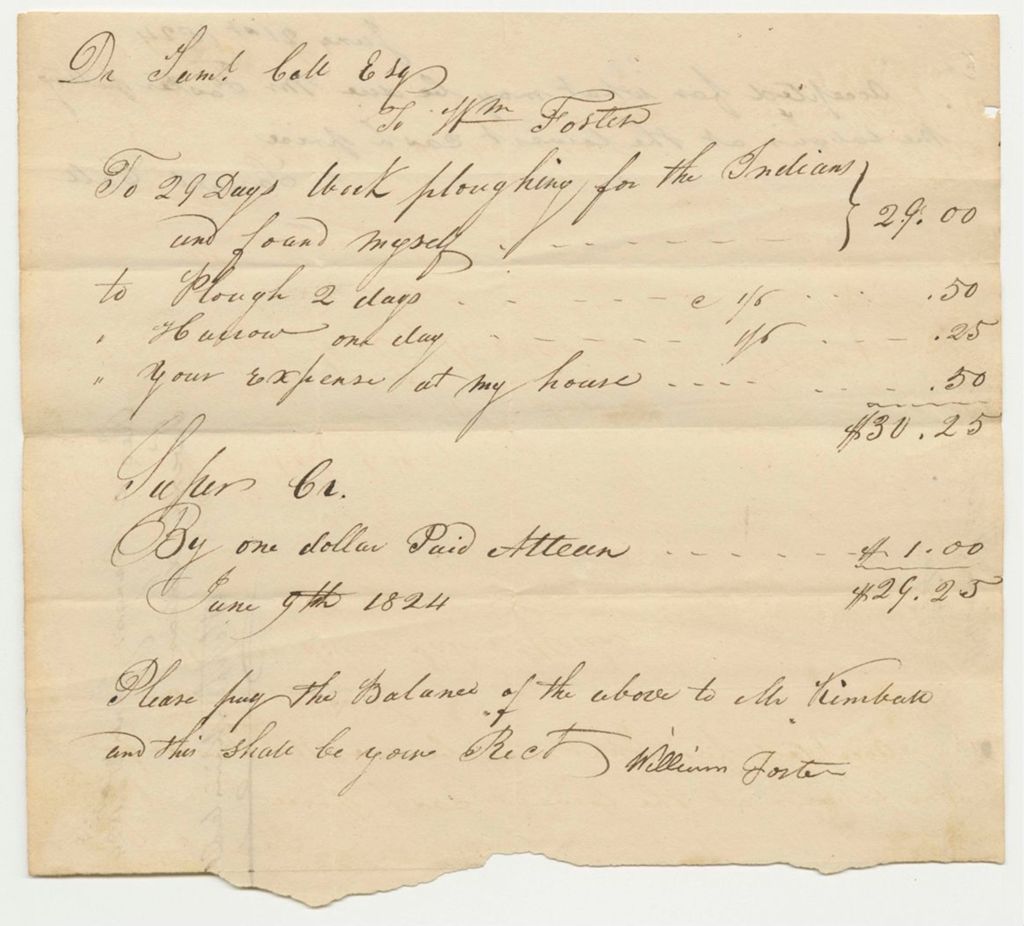 Dr Saml. Call Esq
To Wm Foster
To 29 Days Work ploughing for the Indians
and found myself - - - - - - 29.00
to Plough 2 days - - - - - c 1/6 - - - .50
" Harrow one day - - - - - 1/6 - - - .25
" Your Expense at my house - - - - - - .50
$30.25
Super Cr.
By one dollar Paid Attean - - - - - - $1.00
June 9th 1824 $29.25
Please pay the Balance of the above to Mr Kimball
and this shall be your Rect William Foster